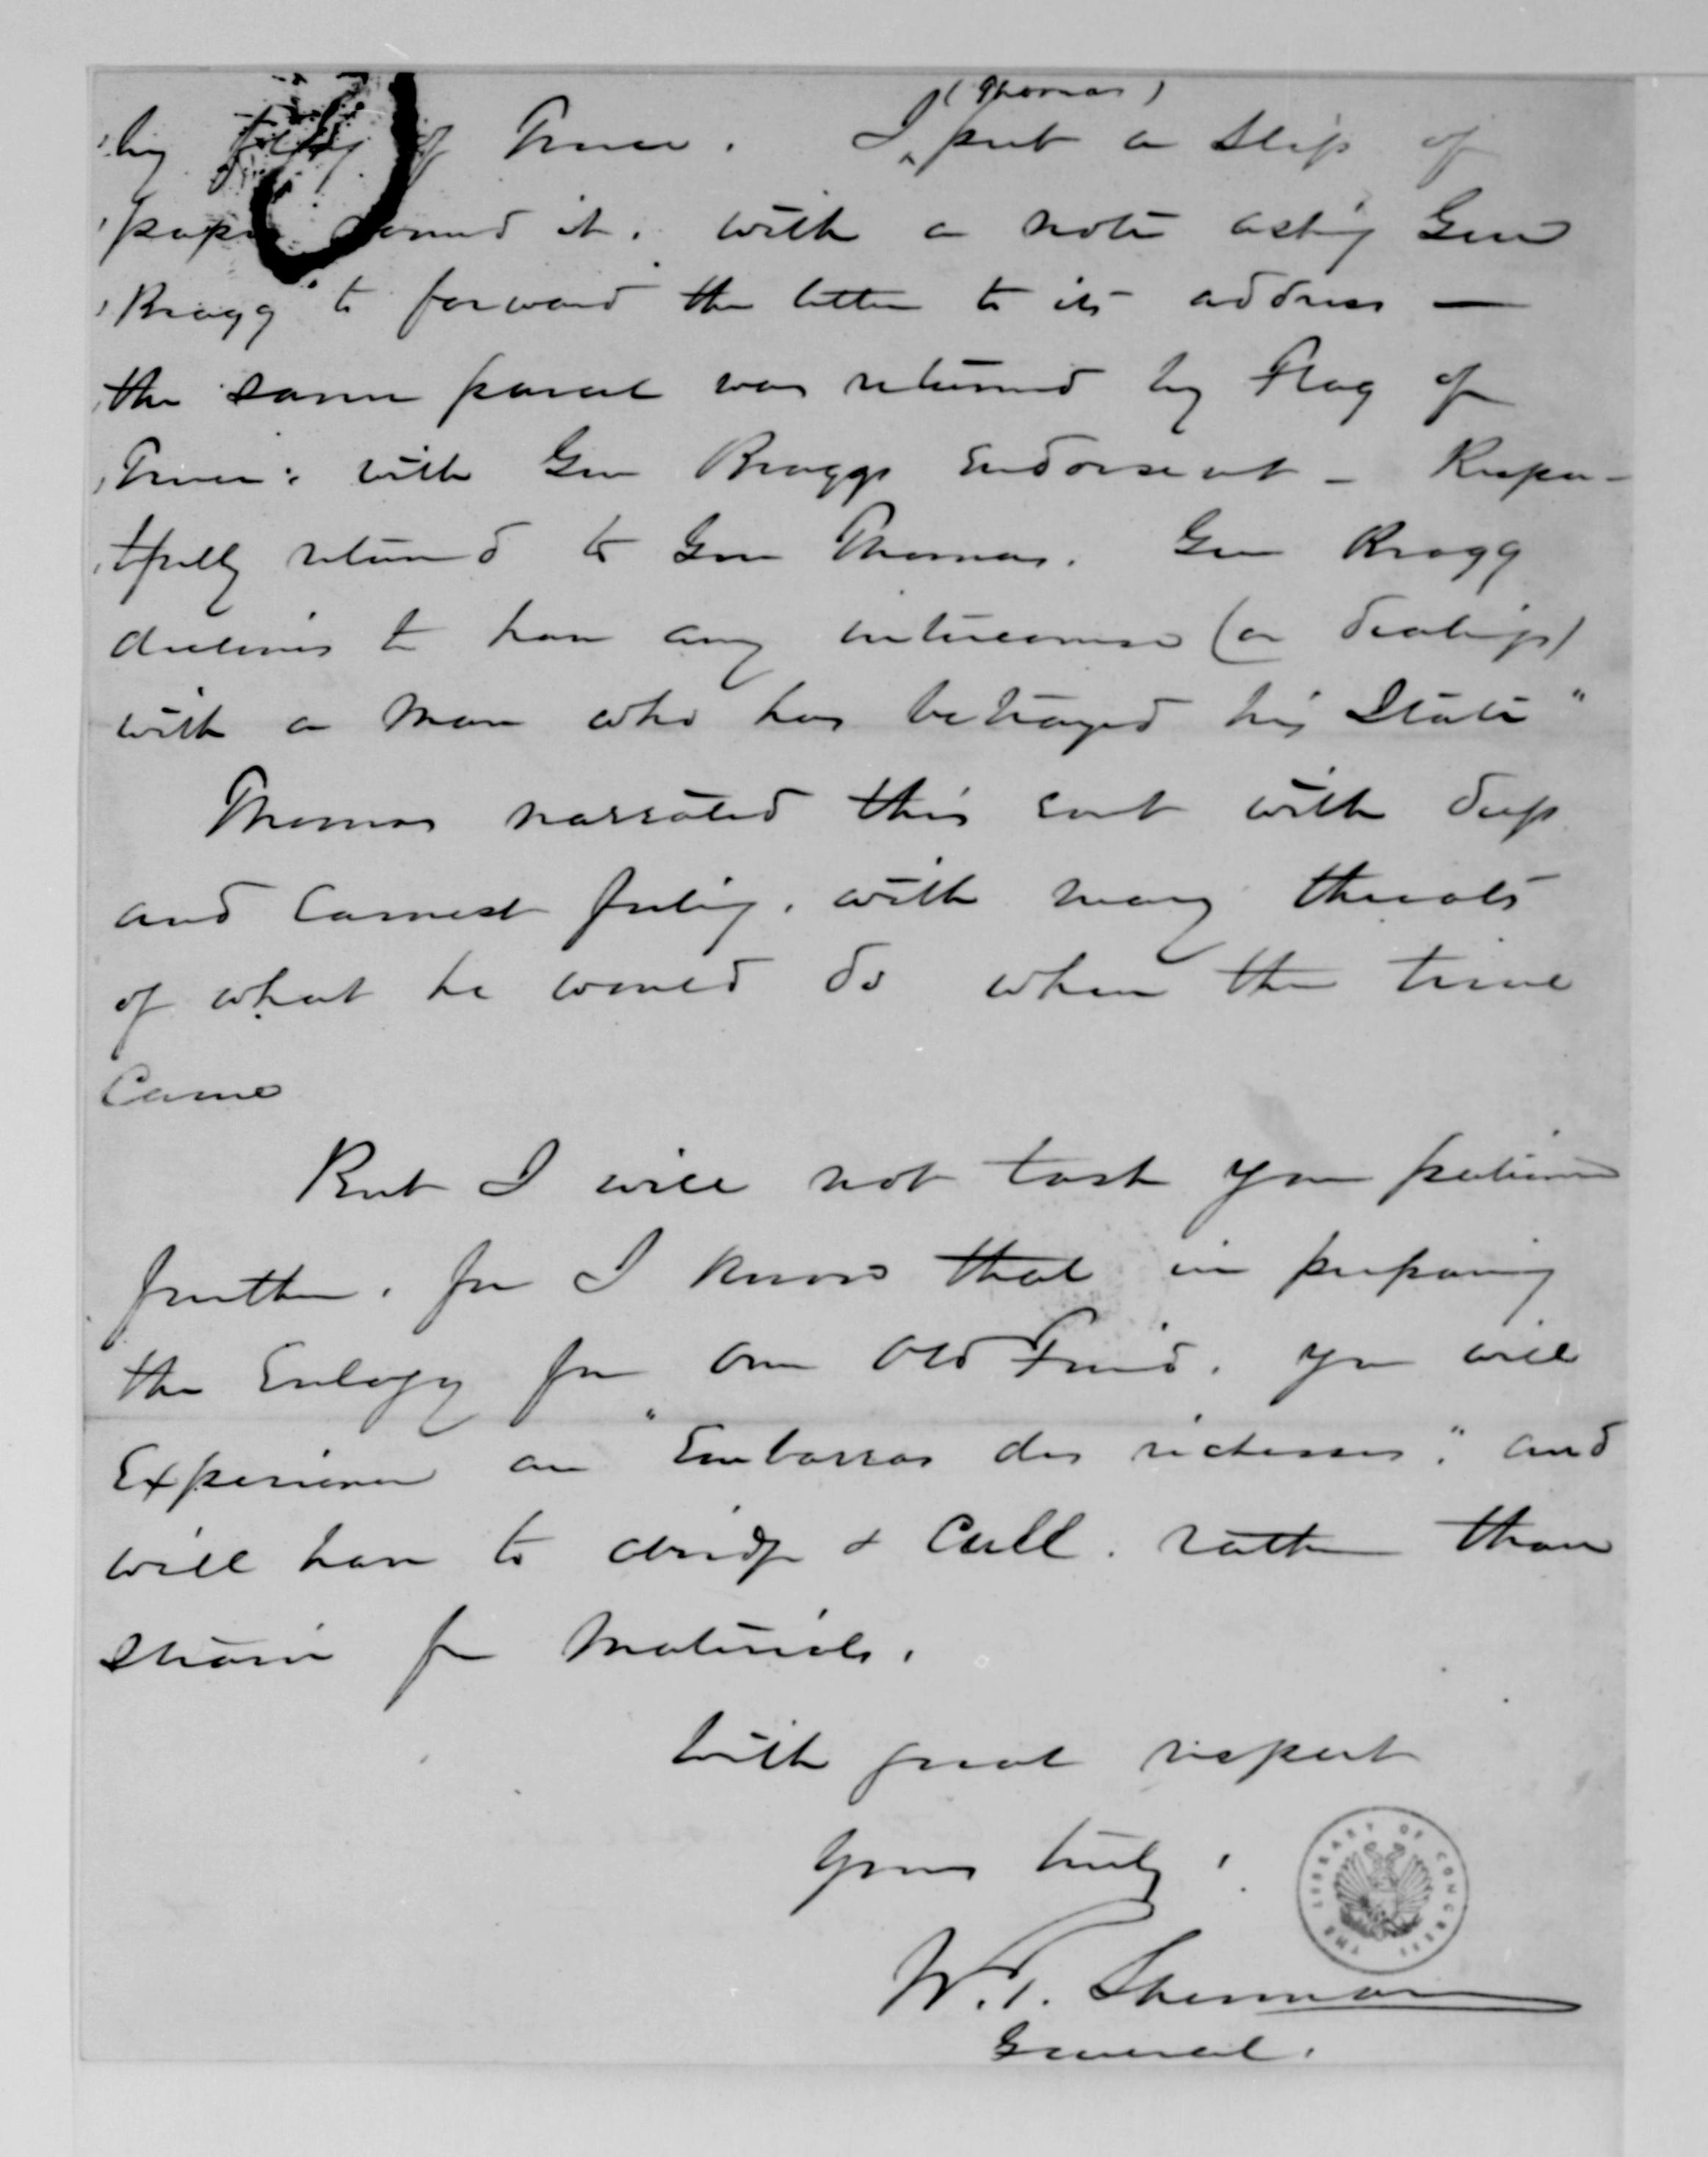 (Thomas)
by flag of Truce. I put a slip of
paper around it, with a note asking Gen
Bragg to forward the letter to its address —
the same parcel was returned by Flag of
Truce: with Gen Braggs Endorsement - Respec-
tfully returned to Gen Thomas. Gen Bragg
declines to have any intercourse (or dealings)
with a man who has betrayed his State"
Thomas narrated this event with deep
and Earnest feeling, with many threats
of what he would do when the time
Came
But I will not task your patience
further, for I know that in preparing
the Eulogy for our Old Friend, you will
Experience an "Embarras des richesses," and
will have to abridge & Cull, rather than
Strain for Materials.
With great respect
Yours truly,
W.T. Sherman
General.
THE LIBRARY OF CONGRESS